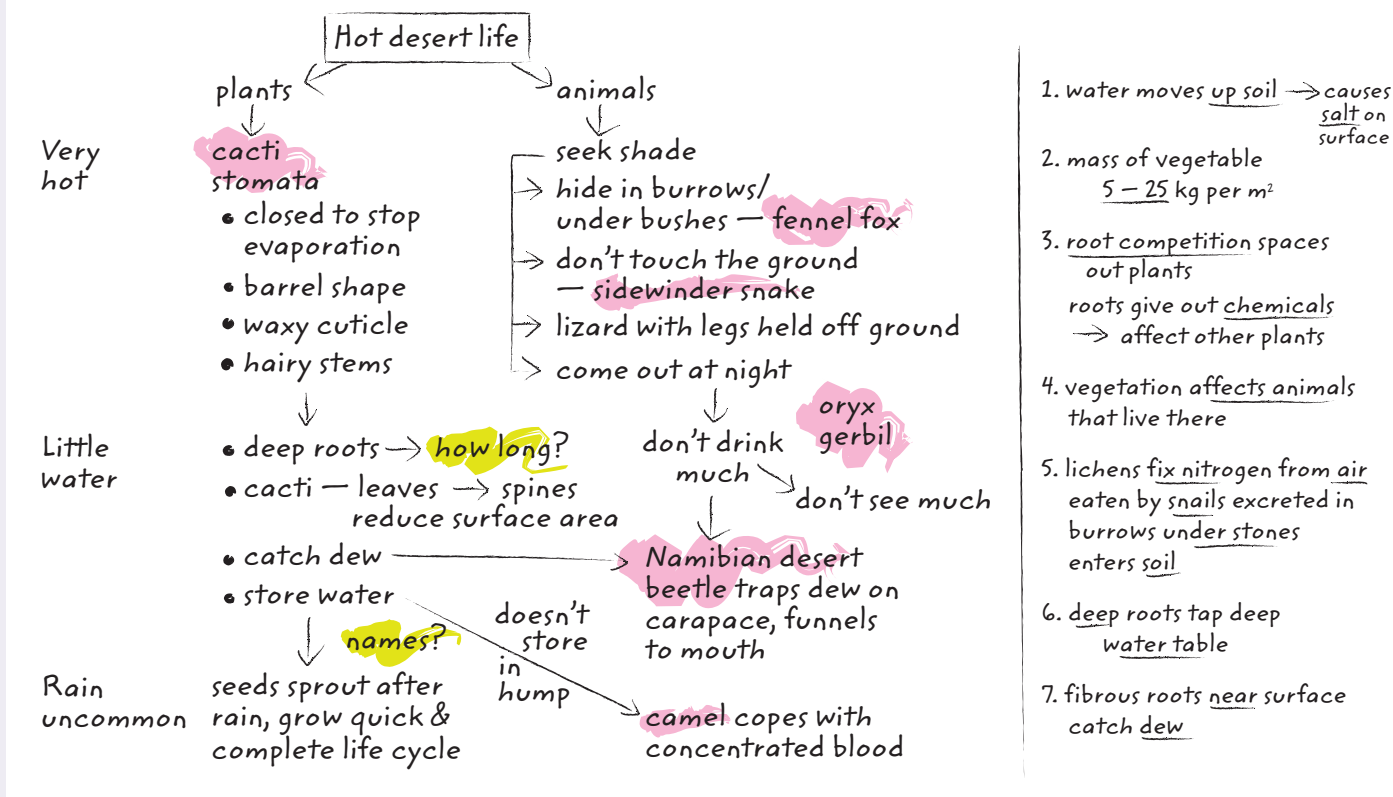 Hot desert life
plants
animals
Very
hot
cacti
stomata
• closed to stop
evaporation
• barrel shape
• waxy cuticle
• hairy stems
seek shade
hide in burrows/
under bushes — fennel fox
don't touch the ground
— sidewinder snake
lizard with legs held off ground
come out at night
Little
water
• deep roots → how long?
• cacti — leaves → spines
reduce surface area
• catch dew
• store water
names?
don't drink
much
oryx
gerbil
don't see much
Namibian desert
beetle traps dew on
carapace, funnels
to mouth
doesn't
store
in
hump
Rain
uncommon
seeds sprout after
rain, grow quick &
complete life cycle
camel copes with
concentrated blood
1. water moves up soil → causes
salt on
surface
2. mass of vegetable
5 – 25 kg per m²
3. root competition spaces
out plants
roots give out chemicals
→ affect other plants
4. vegetation affects animals
that live there
5. lichens fix nitrogen from air
eaten by snails excreted in
burrows under stones
enters soil
6. deep roots tap deep
water table
7. fibrous roots near surface
catch dew